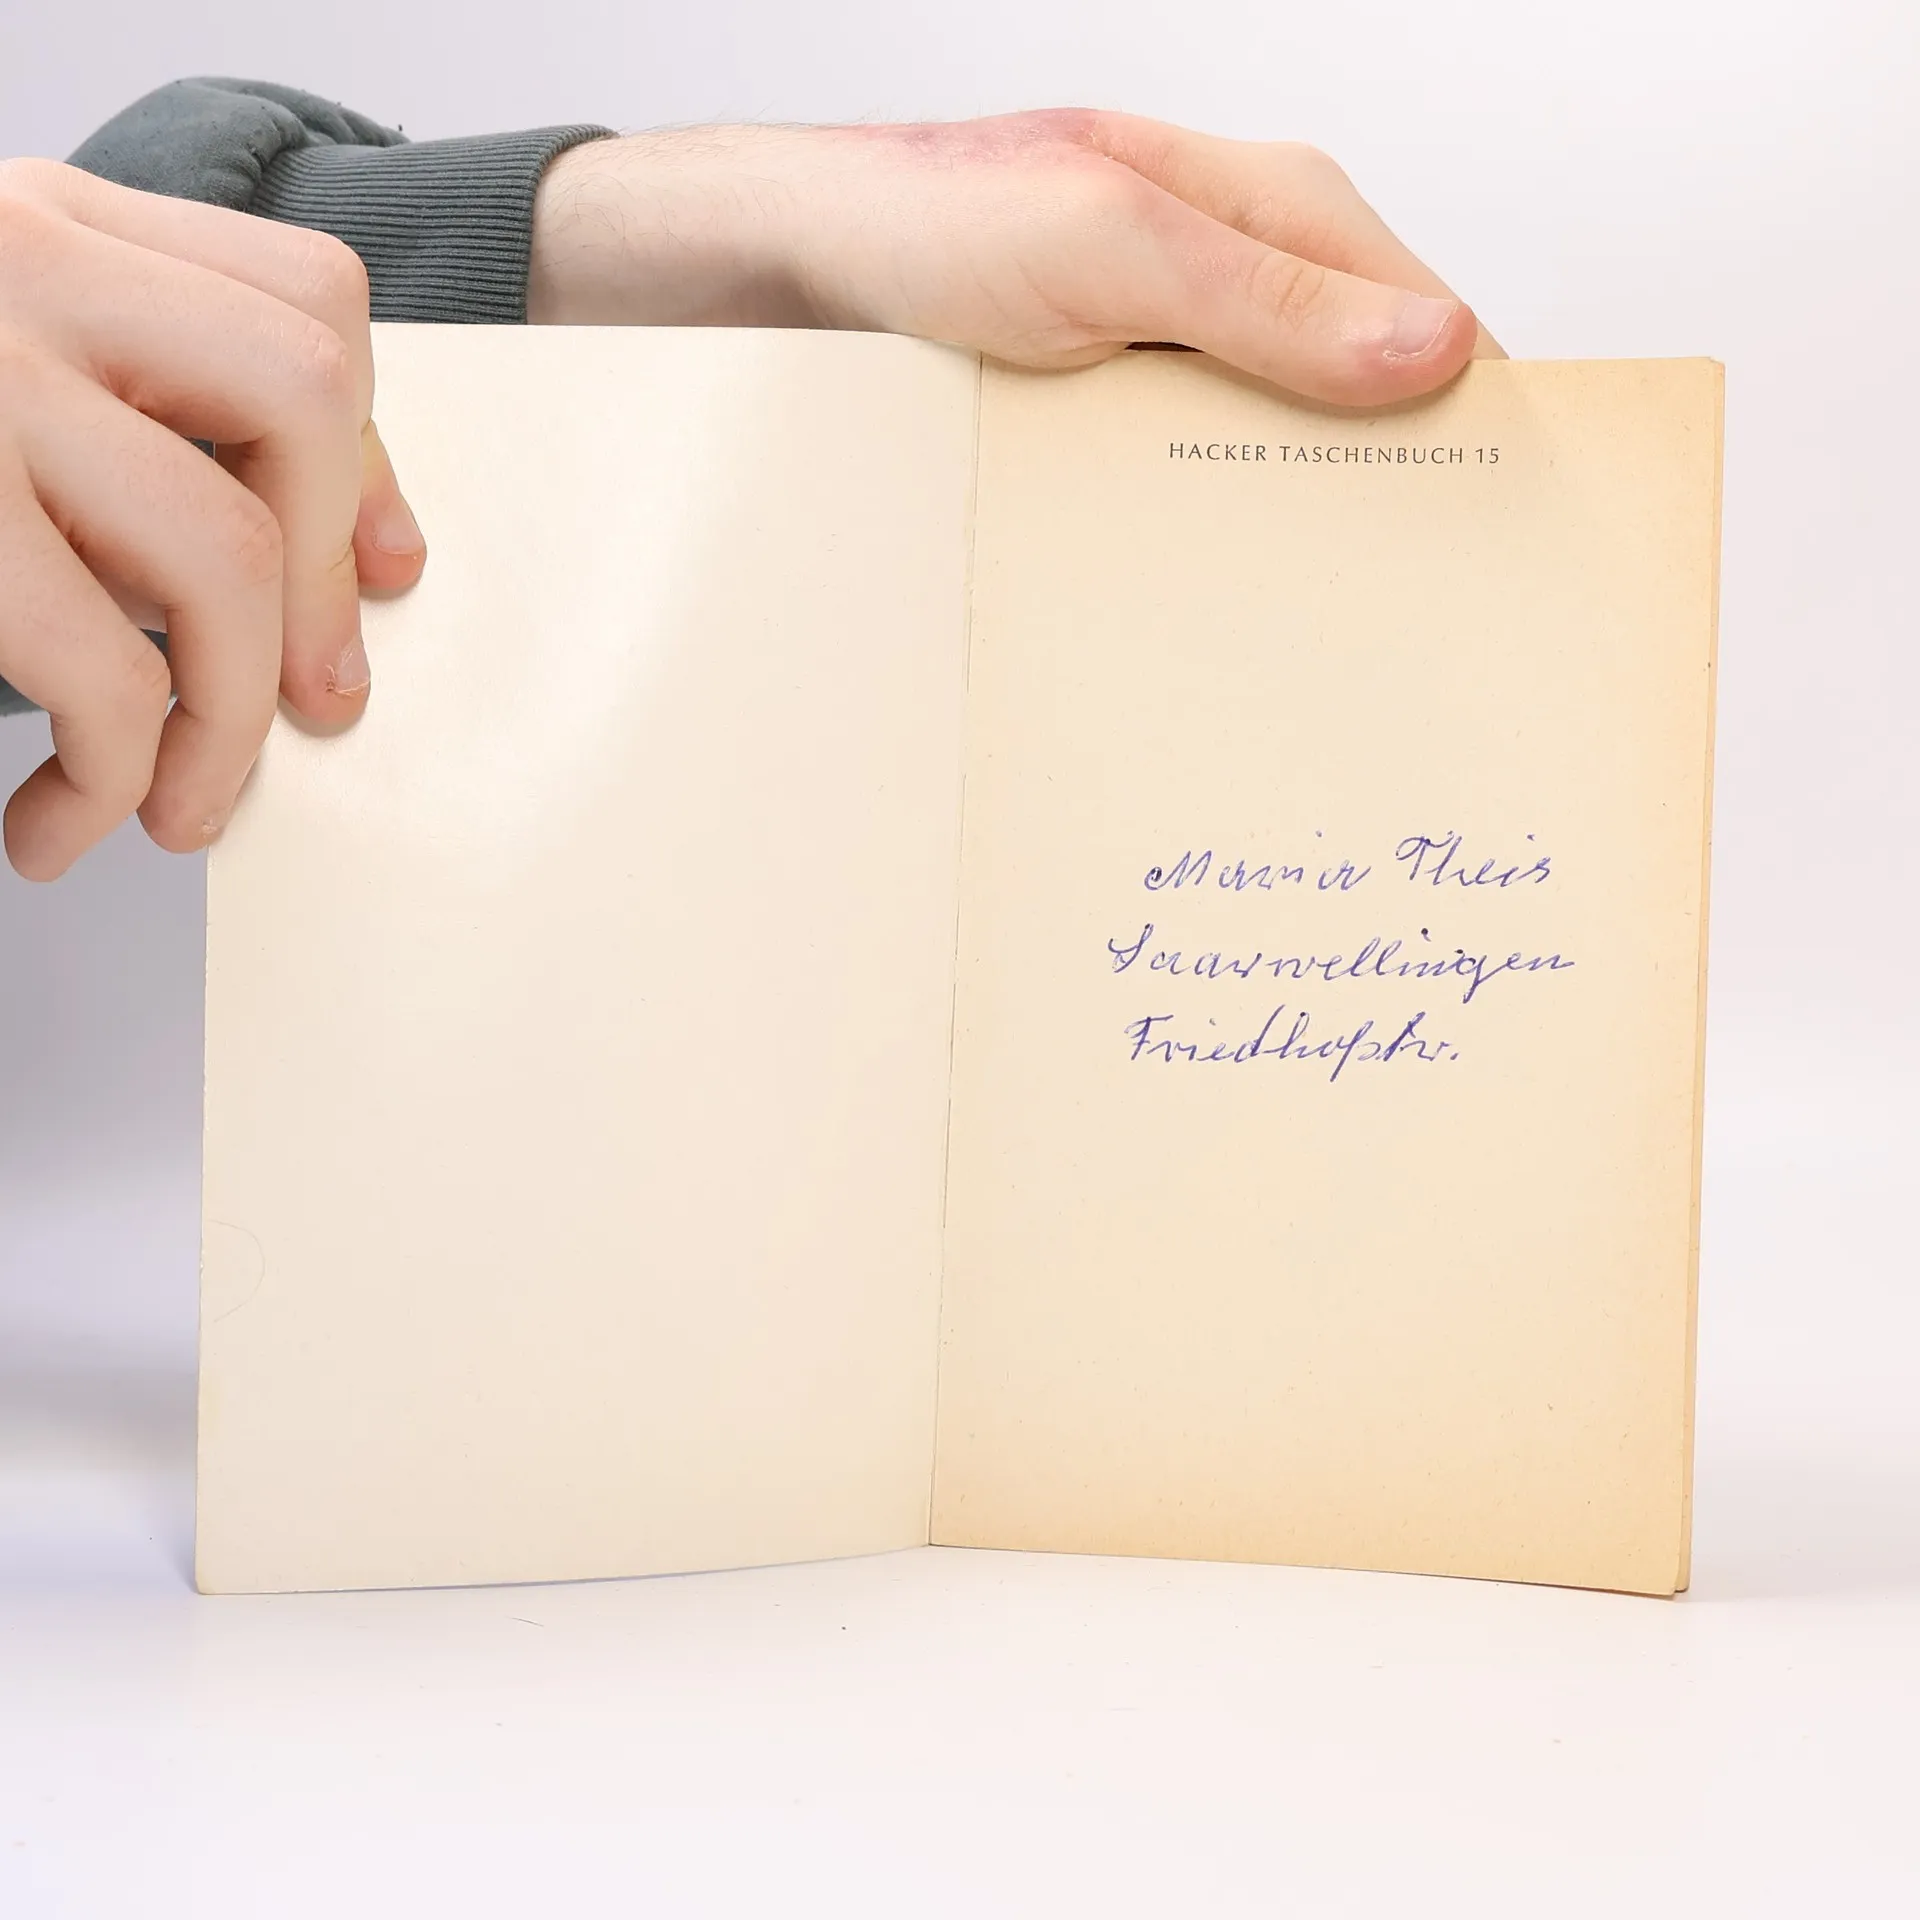 HACKER TASCHENBUCH 15
Maria Theis
Saarwellingen
Friedhofstr.